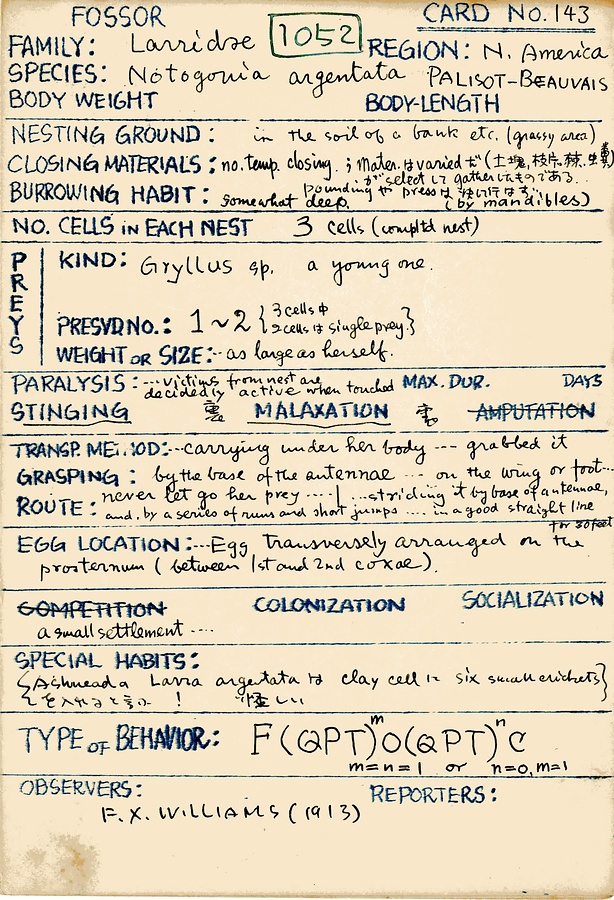 FOSSOR 1052 CARD NO. 143
FAMILY: Larridae REGION: N. America
SPECIES: Notogonia argentata PALISOT-BEAUVAIS
BODY WEIGHT BODY-LENGTH
NESTING GROUND: in the soil of a bank etc. (grassy area)
CLOSING MATERIALS: no. temp. closing. ; Mater. は varied だ (土塊, 枝片, 林, 虫糞)
が select して gatherしたものである.
BURROWING HABIT: somewhat deep. pounding や press は
(by mandibles)
NO. CELLS in EACH NEST 3 cells (compltd nest)
PREYS
KIND: Gryllus sp. a young one.
PRESVD NO.: 1~2 {3 cells 中
2 cells は single prey.}
WEIGHT or SIZE: - as large as herself.
PARALYSIS: --- victims from nest are
decidedly active when touched MAX. DUR. DAYS
STINGING MALAXATION AMPUTATION
TRANSP. METHOD: --- carrying under her body --- grabbed it
GRASPING: by the base of the antennae --- on the wing or foot---
ROUTE: never let go her prey ----| ...striding it by base of antennae,
and, by a series of runs and short jumps .... in a good straight line
for 30 feet
EGG LOCATION: --- Egg transversely arranged on the
prosternum (between 1st and 2nd coxae).
COMPETITION COLONIZATION SOCIALIZATION
a small settlement ----
SPECIAL HABITS:
{Ashmead は Larra argentata は clay cell に six small crickets}
を入れると言ふ ! 怪しい
TYPE of BEHAVIOR: F(QPT)^m O(QPT)^n C
m=n=1 or n=0, m=1
OBSERVERS: REPORTERS:
F. X. WILLIAMS (1913)